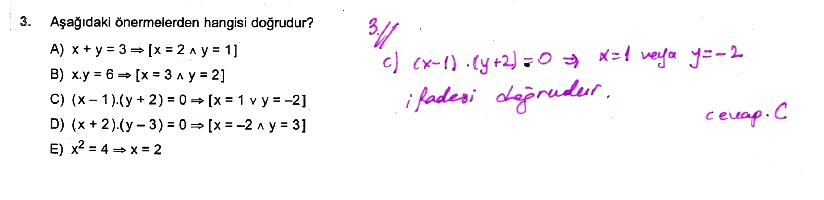 3. Aşağıdaki önermelerden hangisi doğrudur?
A) x + y = 3 ⇒ [x = 2 ∧ y = 1]
B) x.y = 6 ⇒ [x = 3 ∧ y = 2]
C) (x – 1).(y + 2) = 0 ⇒ [x = 1 ∨ y = –2]
D) (x + 2).(y – 3) = 0 ⇒ [x = –2 ∧ y = 3]
E) x² = 4 ⇒ x = 2
3.//
c) (x-1) . (y+2) = 0 ⇒ x=1 veya y=-2
ifadesi doğrudur.
cevap. C